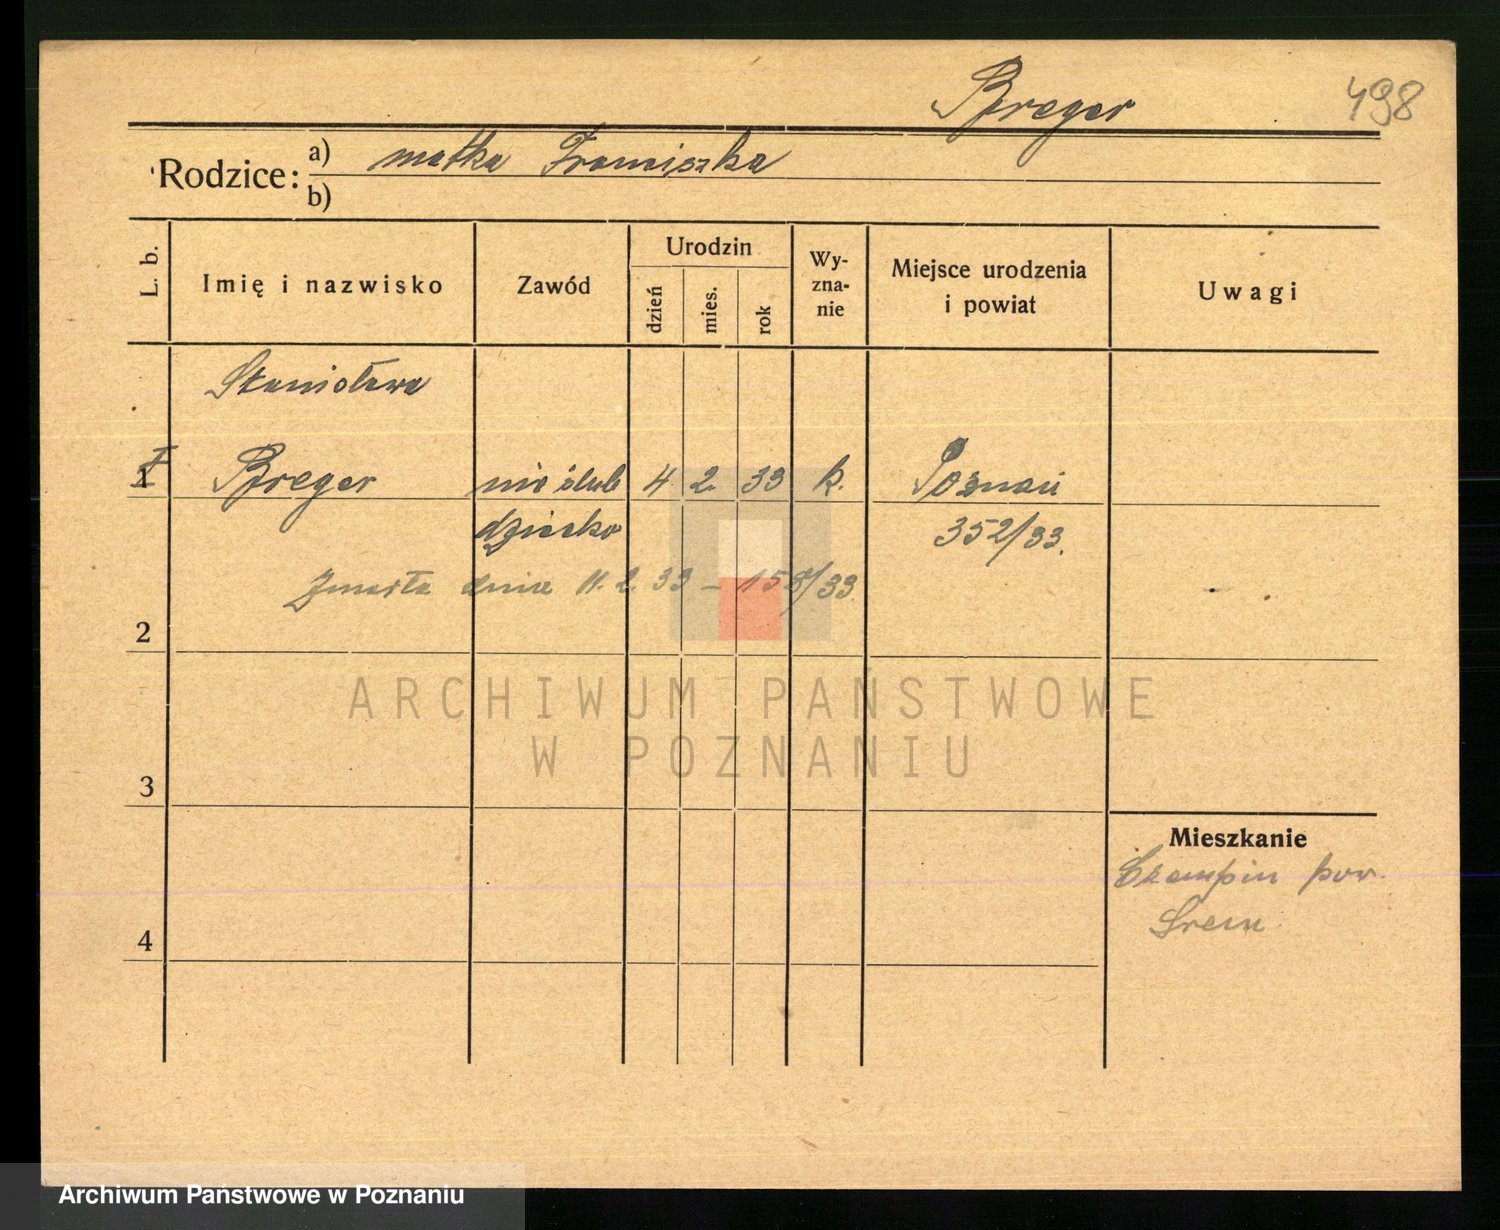 Breger
498
Rodzice:
a) matka Franciszka
b)
L. b.
Imię i nazwisko
Zawód
Urodzin
dzień
mies.
rok
Wy-
zna-
nie
Miejsce urodzenia
i powiat
Uwagi
Stanisława
1 Breger nieślub 4 2. 33 k. Poznań
dziecko 352/33.
Zmarła dnia 11. 2. 33 – 158/33
2
ARCHIWUM PAŃSTWOWE
W POZNANIU
3
Mieszkanie
pow.
Śrem
4
Archiwum Państwowe w Poznaniu